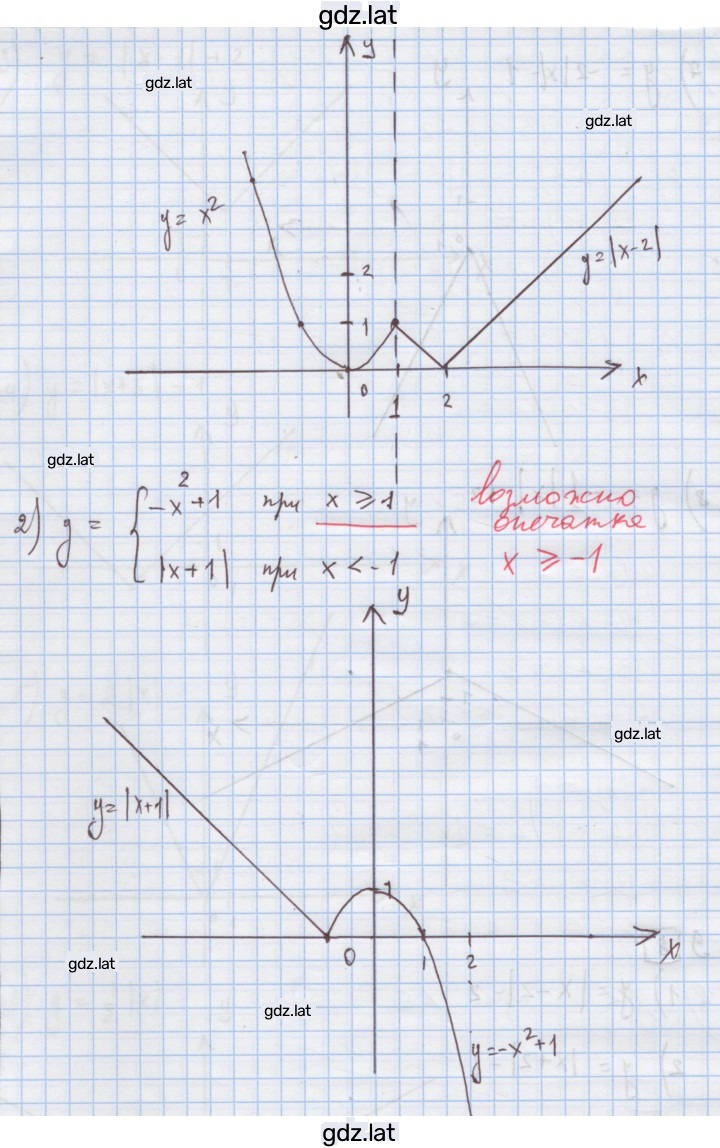 gdz.lat
y
gdz.lat
gdz.lat
y = x²
y = |x-2|
2
1
0
1
2
x
gdz.lat
2) y = { -x² + 1 при x ⩾ 1
|x+1| при x < -1
возможно
опечатка
x ⩾ -1
y
gdz.lat
y = |x+1|
1
0
1
2
x
gdz.lat
gdz.lat
y = -x² + 1
gdz.lat